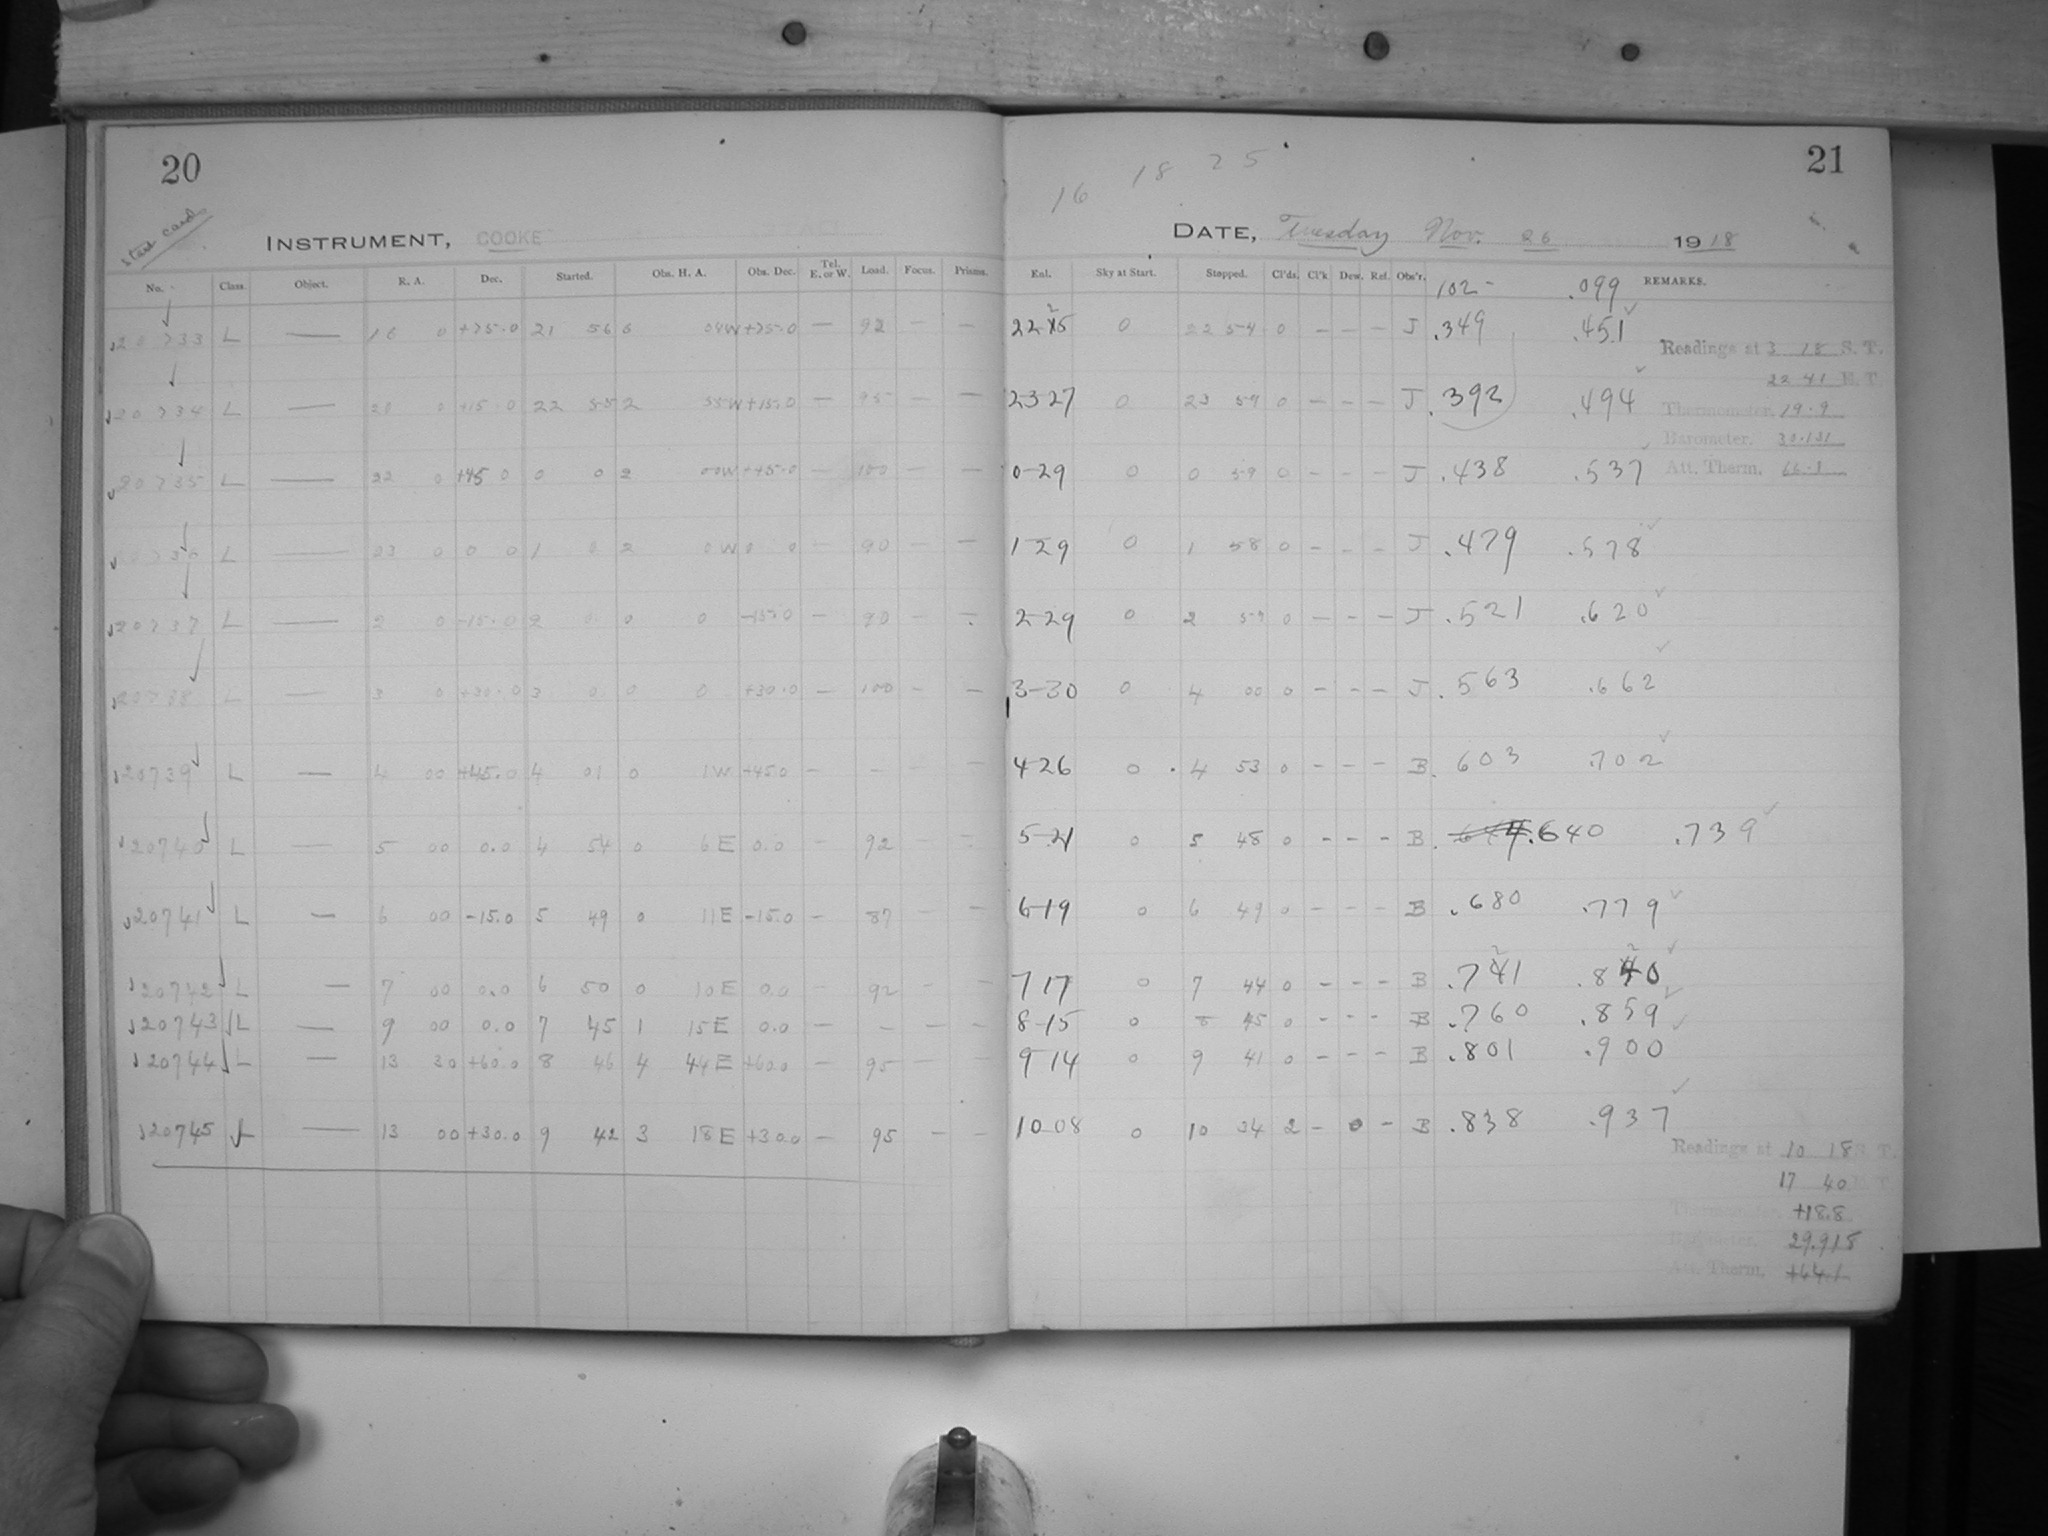 20
stard card
INSTRUMENT, COOKE
No. Class. Object. R. A. Dec. Started. Obs. H. A. Obs. Dec. Tel. E. or W. Load. Focus. Prisms.
20733 L — 18 0 +75.0 21 56 — 92 — —
20734 L — 20 0 +15.0 22 55 2 55W +15.0 — 95 — —
20735 L — 22 0 +45 0 0 0 2 00W +45.0 — 100 — —
L — 23 0 0 0 1 0 2 0W 0 0 — 90 — —
20737 L — 2 0 -15.0 2 0 0 0 -15.0 — 90 — —
20738 L — 3 0 +30.0 3 0 0 0 +30.0 — 100 — —
20739 L — 4 00 +45.0 4 01 0 1W +45.0 — — — —
20740 L — 5 00 0.0 4 54 0 6E 0.0 — 92 — —
20741 L — 6 00 -15.0 5 49 0 11E -15.0 — 87 — —
20742 L — 7 00 0.0 6 50 0 10E 0.0 — 92 — —
20743 L — 9 00 0.0 7 45 1 15E 0.0 — — — —
20744 L — 13 30 +60.0 8 46 4 44E +60.0 — 95 — —
20745 L — 13 00 +30.0 9 42 3 18E +30.0 — 95 — —
21
16 18 25
DATE, Tuesday Nov. 26 1918
Exl. Sky at Start. Stopped. Cl'ds. Cl'k Dew. Ref. Obs'r. REMARKS.
102- .099
22 25 0 22 54 0 — — — J .349 .451
23 27 0 23 59 0 — — — J .392 .494
0-29 0 0 59 0 — — — J .438 .537
1-29 0 1 58 0 — — — J .479 .578
2-29 0 2 59 0 — — — J .521 .620
3-30 0 4 00 0 — — — J .563 .662
4 26 0 4 53 0 — — — B .603 .702
5-21 0 5 48 0 — — — B .640 .739
6-19 0 6 49 0 — — — B .680 .779
7 17 0 7 44 0 — — — B .721 .820
8-15 0 8 45 0 — — — B .760 .859
9 14 0 9 41 0 — — — B .801 .900
10 08 0 10 34 2 — 0 — B .838 .937
Readings at 3 18 S. T.
22 41 E. T.
Thermometer. 19.9
Barometer. 30.131
Att. Therm. 66.1
Readings at 10 18 S. T.
17 40
Thermometer. +18.8
Barometer. 29.918
Att. Therm. +64.1